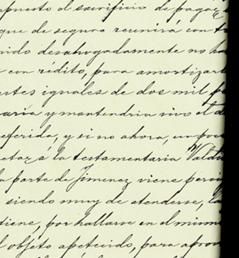 puesto al sacrificio de pagar
que de seguro reunirá con
nido desahogadamente no ha
con rédito, para amortizar
artes iguales de dos mil
aria y mantendria vivo el d
eferido, y si no ahora, un poco
etar á la testamentaria Vald
la parte de Jimenez viene perci
siendo muy de atenderse, la
tiene, por hallarse en el mism
l objeto apetecido, para apro